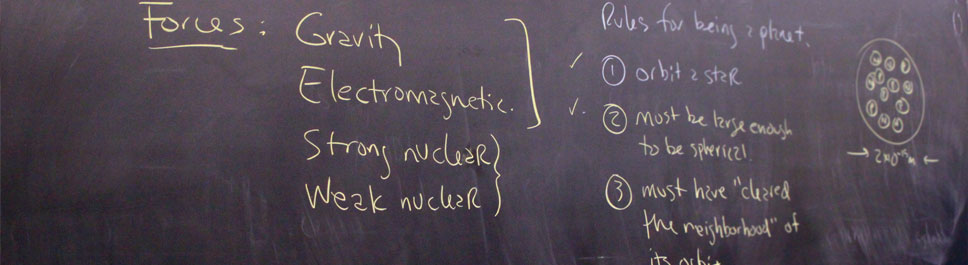 Forces: Gravity
Electromagnetic.
Strong nuclear
Weak nuclear
Rules for being a planet.
① orbit a star
② must be large enough
to be spherical.
③ must have "cleared
the neighborhood" of
its orbit